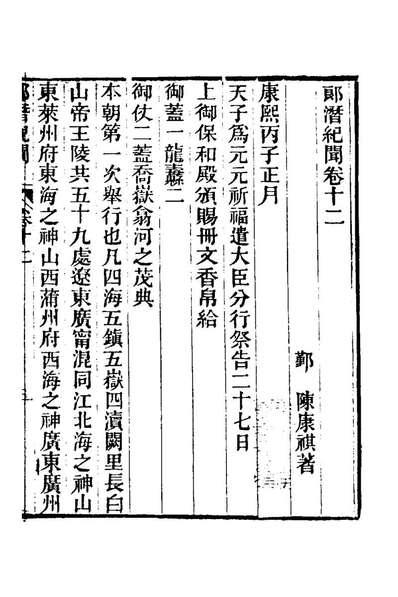 郎潛紀聞卷十二
鄞　陳康祺著
康熙丙子正月
天子爲元元祈福遣大臣分行祭告二十七日
上御保和殿頒賜冊文香帛給
御蓋一龍纛二
御仗二蓋喬嶽翕河之茂典
本朝第一次舉行也凡四海五鎮五嶽四瀆闕里長白
山帝王陵共五十九處遼東廣甯混同江北海之神山
東萊州府東海之神山西蒲州府西海之神廣東廣州